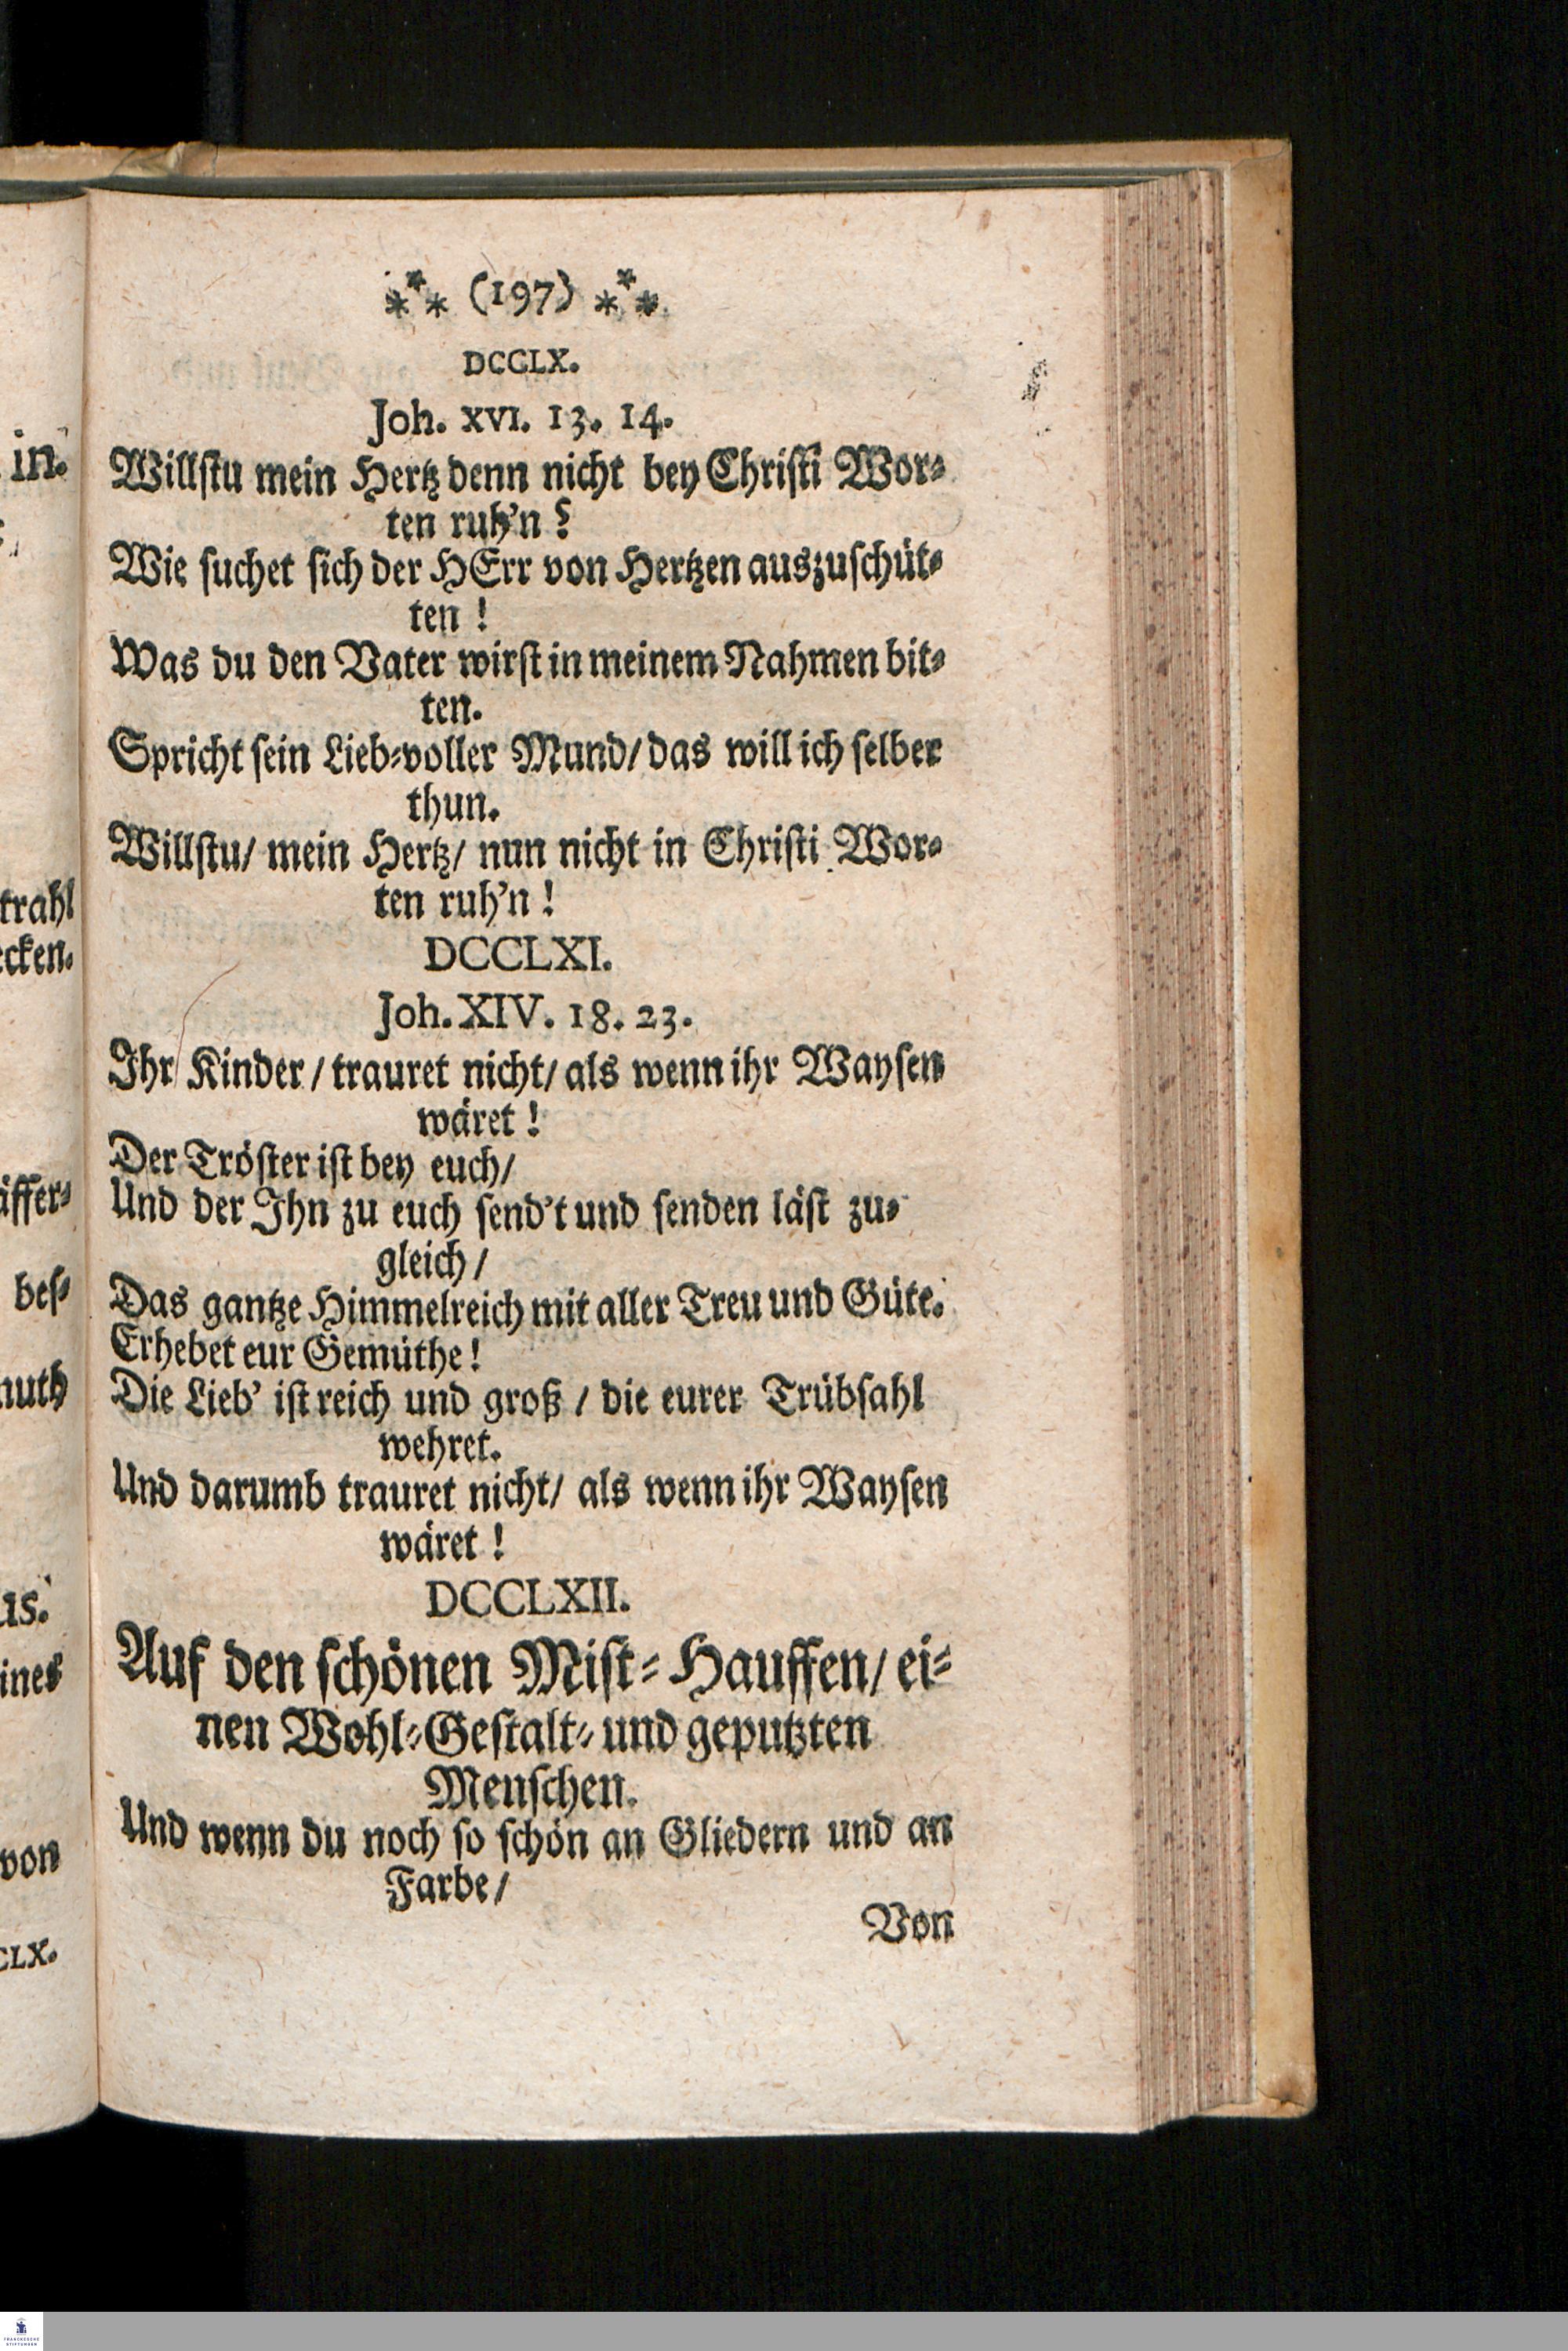 ⁂ (197) ⁂
DCCLX.
Joh. XVI. 13. 14.
Willſtu mein Hertz denn nicht bey Chriſti Wor⸗
ten ruh'n?
Wie ſuchet ſich der HErr von Hertzen auszuſchüt⸗
ten!
Was du den Vater wirſt in meinem Nahmen bit⸗
ten.
Spricht ſein Lieb⸗voller Mund/ das will ich ſelber
thun.
Willſtu/ mein Hertz/ nun nicht in Chriſti Wor⸗
ten ruh'n!
DCCLXI.
Joh. XIV. 18. 23.
Ihr Kinder/ trauret nicht/ als wenn ihr Wayſen
wäret!
Der Tröſter iſt bey euch/
Und der Ihn zu euch ſend't und ſenden läſt zu⸗
gleich/
Das gantze Himmelreich mit aller Treu und Güte.
Erhebet eur Gemüthe!
Die Lieb' iſt reich und groß/ die eurer Trübſahl
wehret.
Und darumb trauret nicht/ als wenn ihr Wayſen
wäret!
DCCLXII.
Auf den ſchönen Miſt⸗Hauffen/ ei⸗
nen Wohl⸗Geſtalt⸗ und geputzten
Menſchen.
Und wenn du noch ſo ſchön an Gliedern und an
Farbe/
Von
in.
trahl
ecken.
äffer⸗
beſ⸗
muth
us.
ines
von
CLX.
FRANCKESCHE
STIFTUNGEN